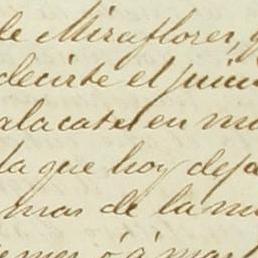 de Miraflores,
decirte el juici
a la casa en m
la que hoy deja
mas de la m